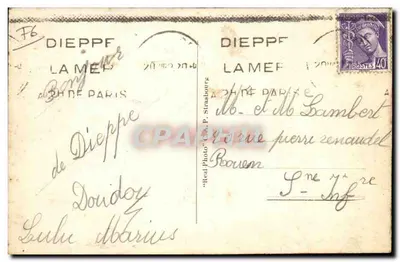 76
DIEPPE
LA MER
À 2H DE PARIS
DIEPPE
LA MER
À 2H DE PARIS
POSTES 40
Bonjour
de Dieppe
Doudou
Lulu Marius
"Real Photo" C. A. P. Strasbourg
M. et Me Lambert
rue pierre renaudel
Rouen
Sne Infre